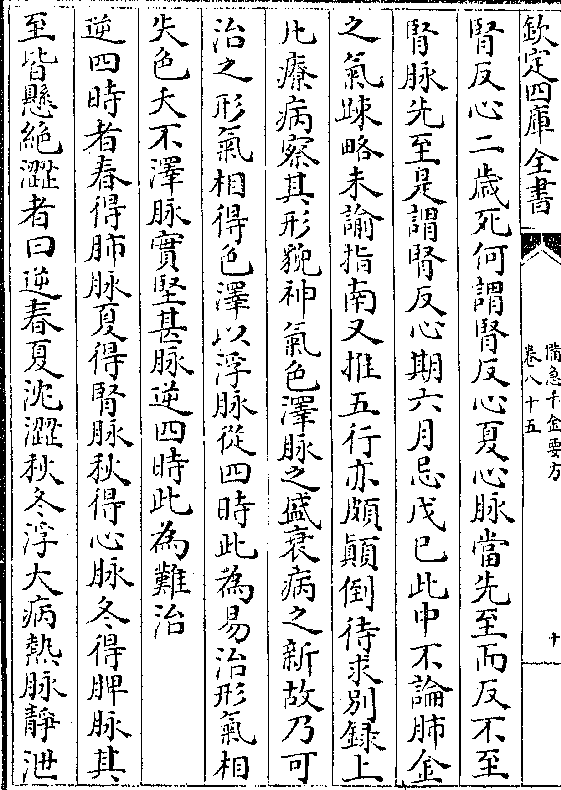 欽定四庫全書
備急千金要方
卷八十五
十
腎反心二歲死何謂腎反心夏心脉當先至而反不至
腎脉先至是謂腎反心期六月忌戊已此中不論肺金
之氣踈略未諭指南又推五行亦頗顛倒待求别録上
凡療病察其形貌神氣色澤脉之盛衰病之新故乃可
治之形氣相得色澤以浮脉從四時此為易治形氣相
失色夭不澤脉實堅甚脉逆四時此為難治
逆四時者春得肺脉夏得腎脉秋得心脉冬得脾脉其
至皆懸絶澀者曰逆春夏沈澀秋冬浮大病熱脉靜泄